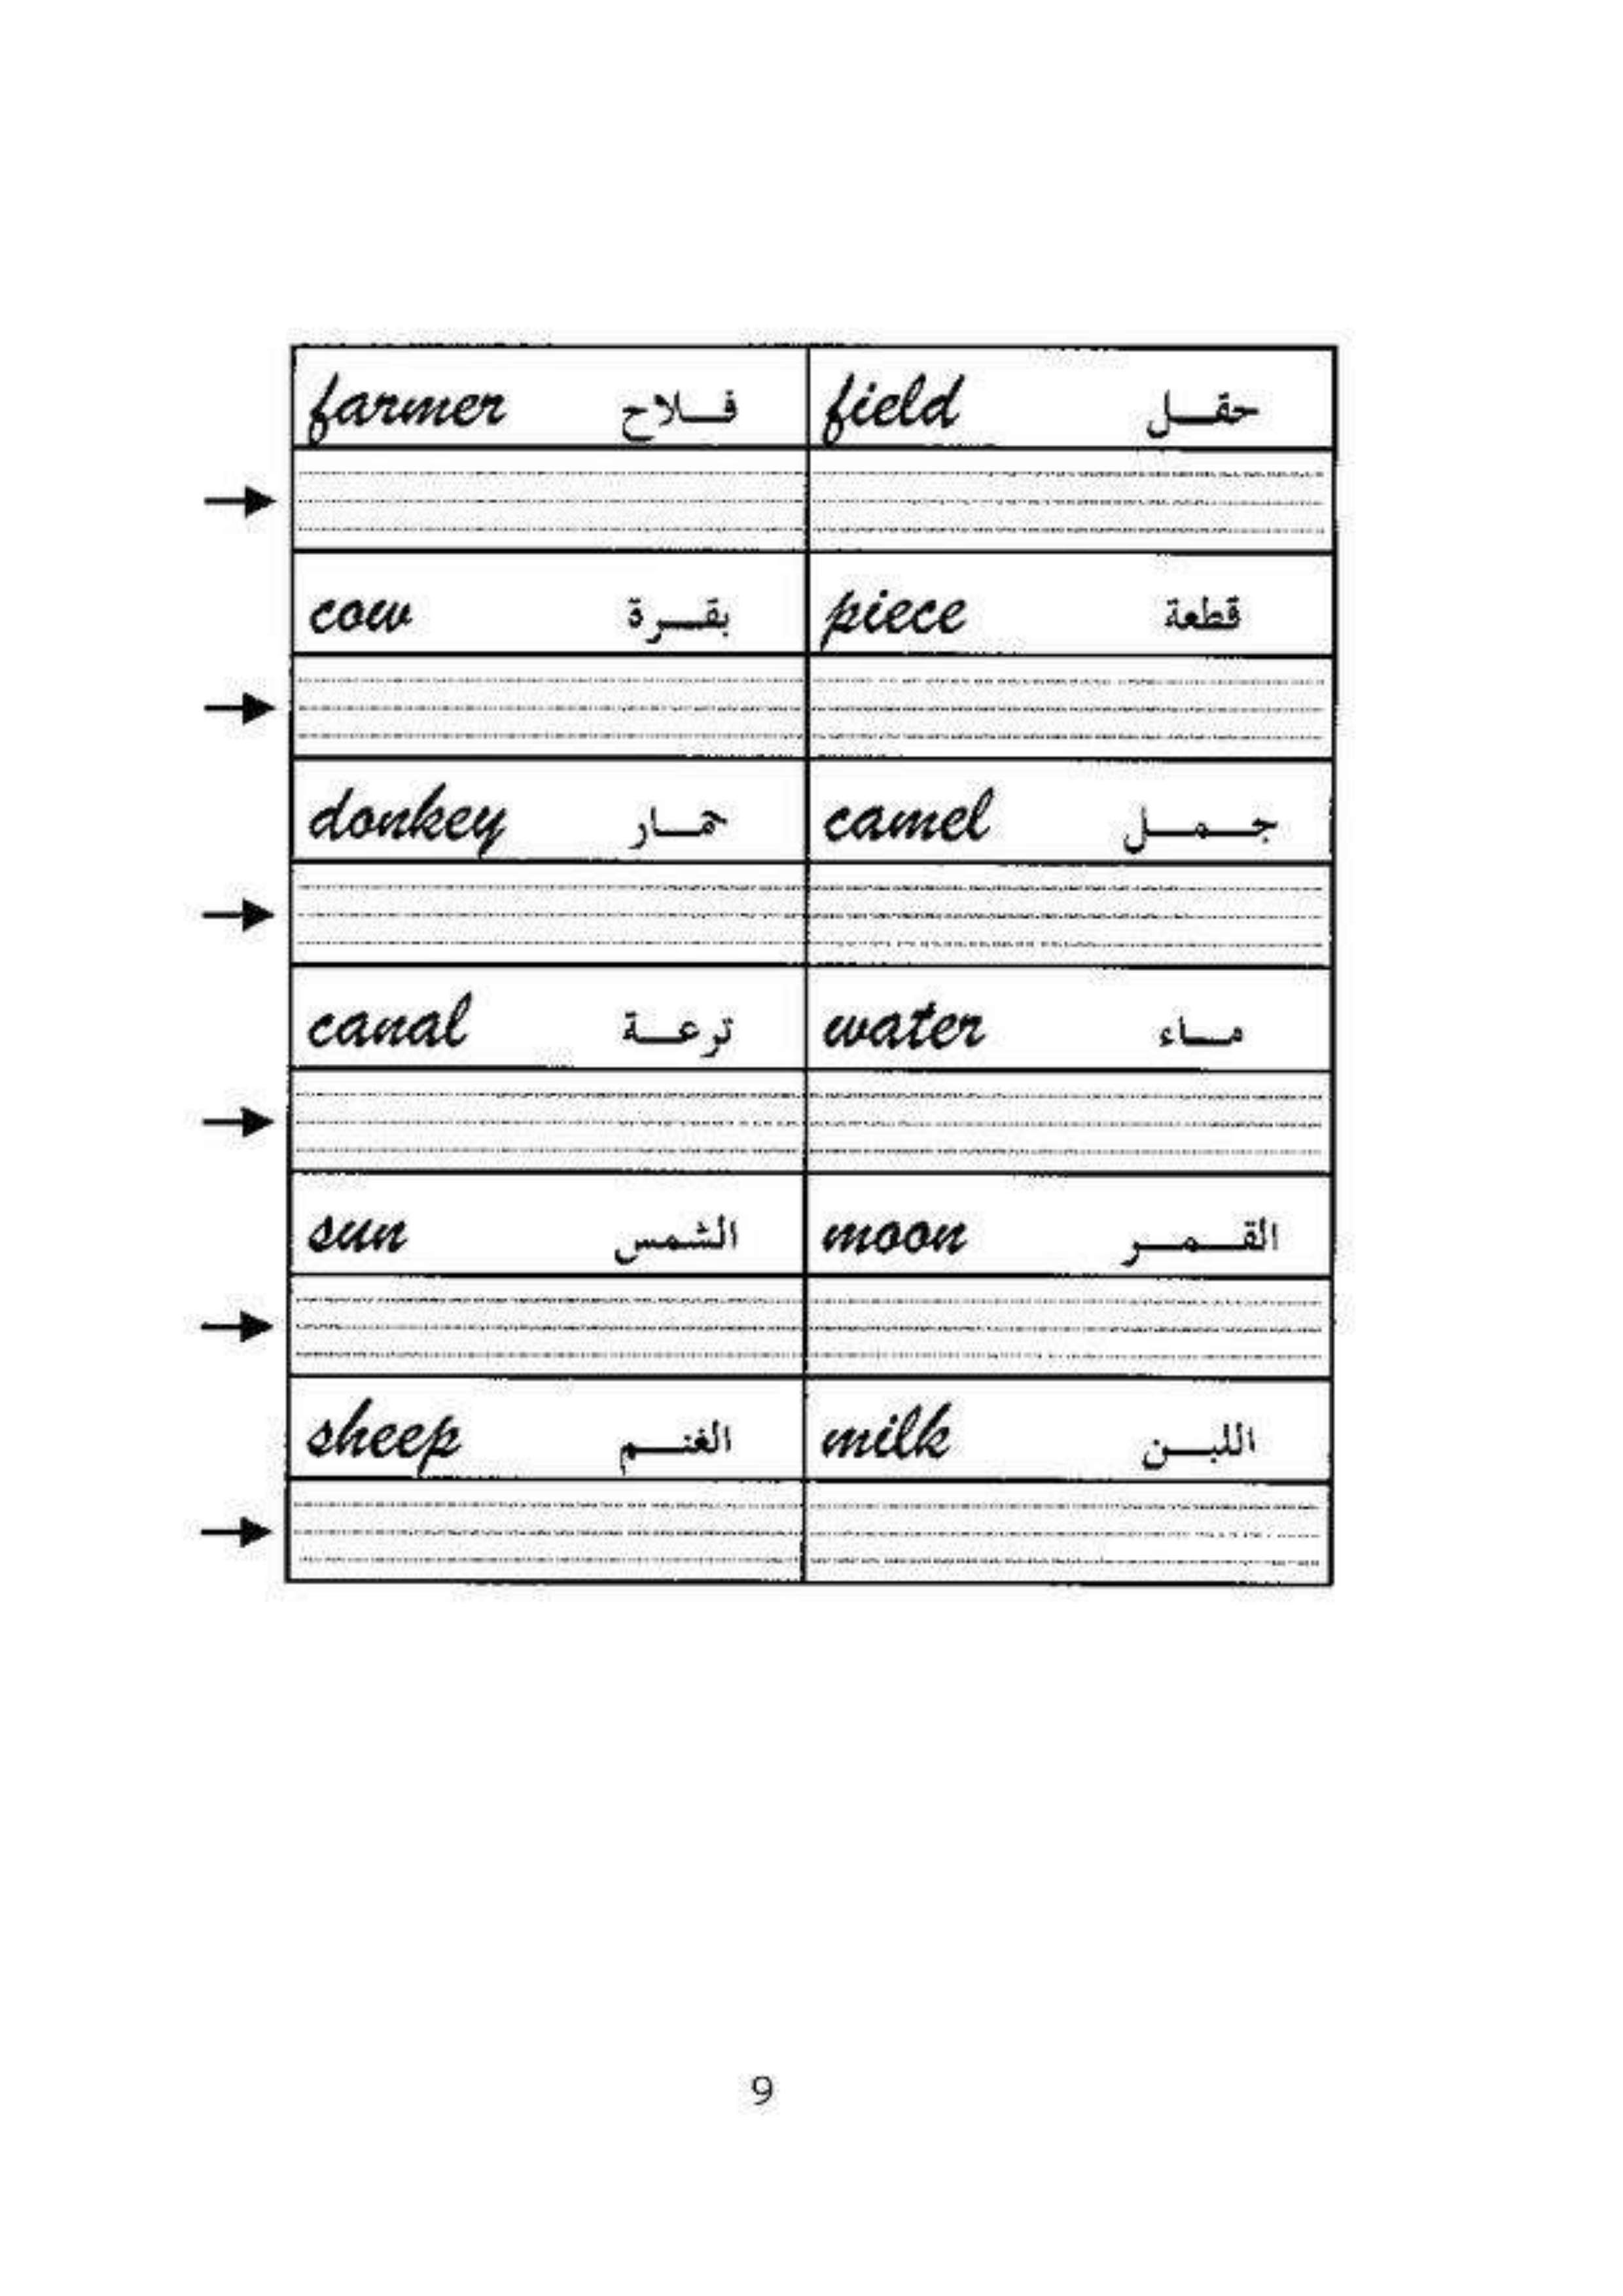 farmer فلاح field حقل
cow بقرة piece قطعة
donkey حمار camel جمل
canal ترعة water ماء
sun الشمس moon القمر
sheep الغنم milk اللبن
9